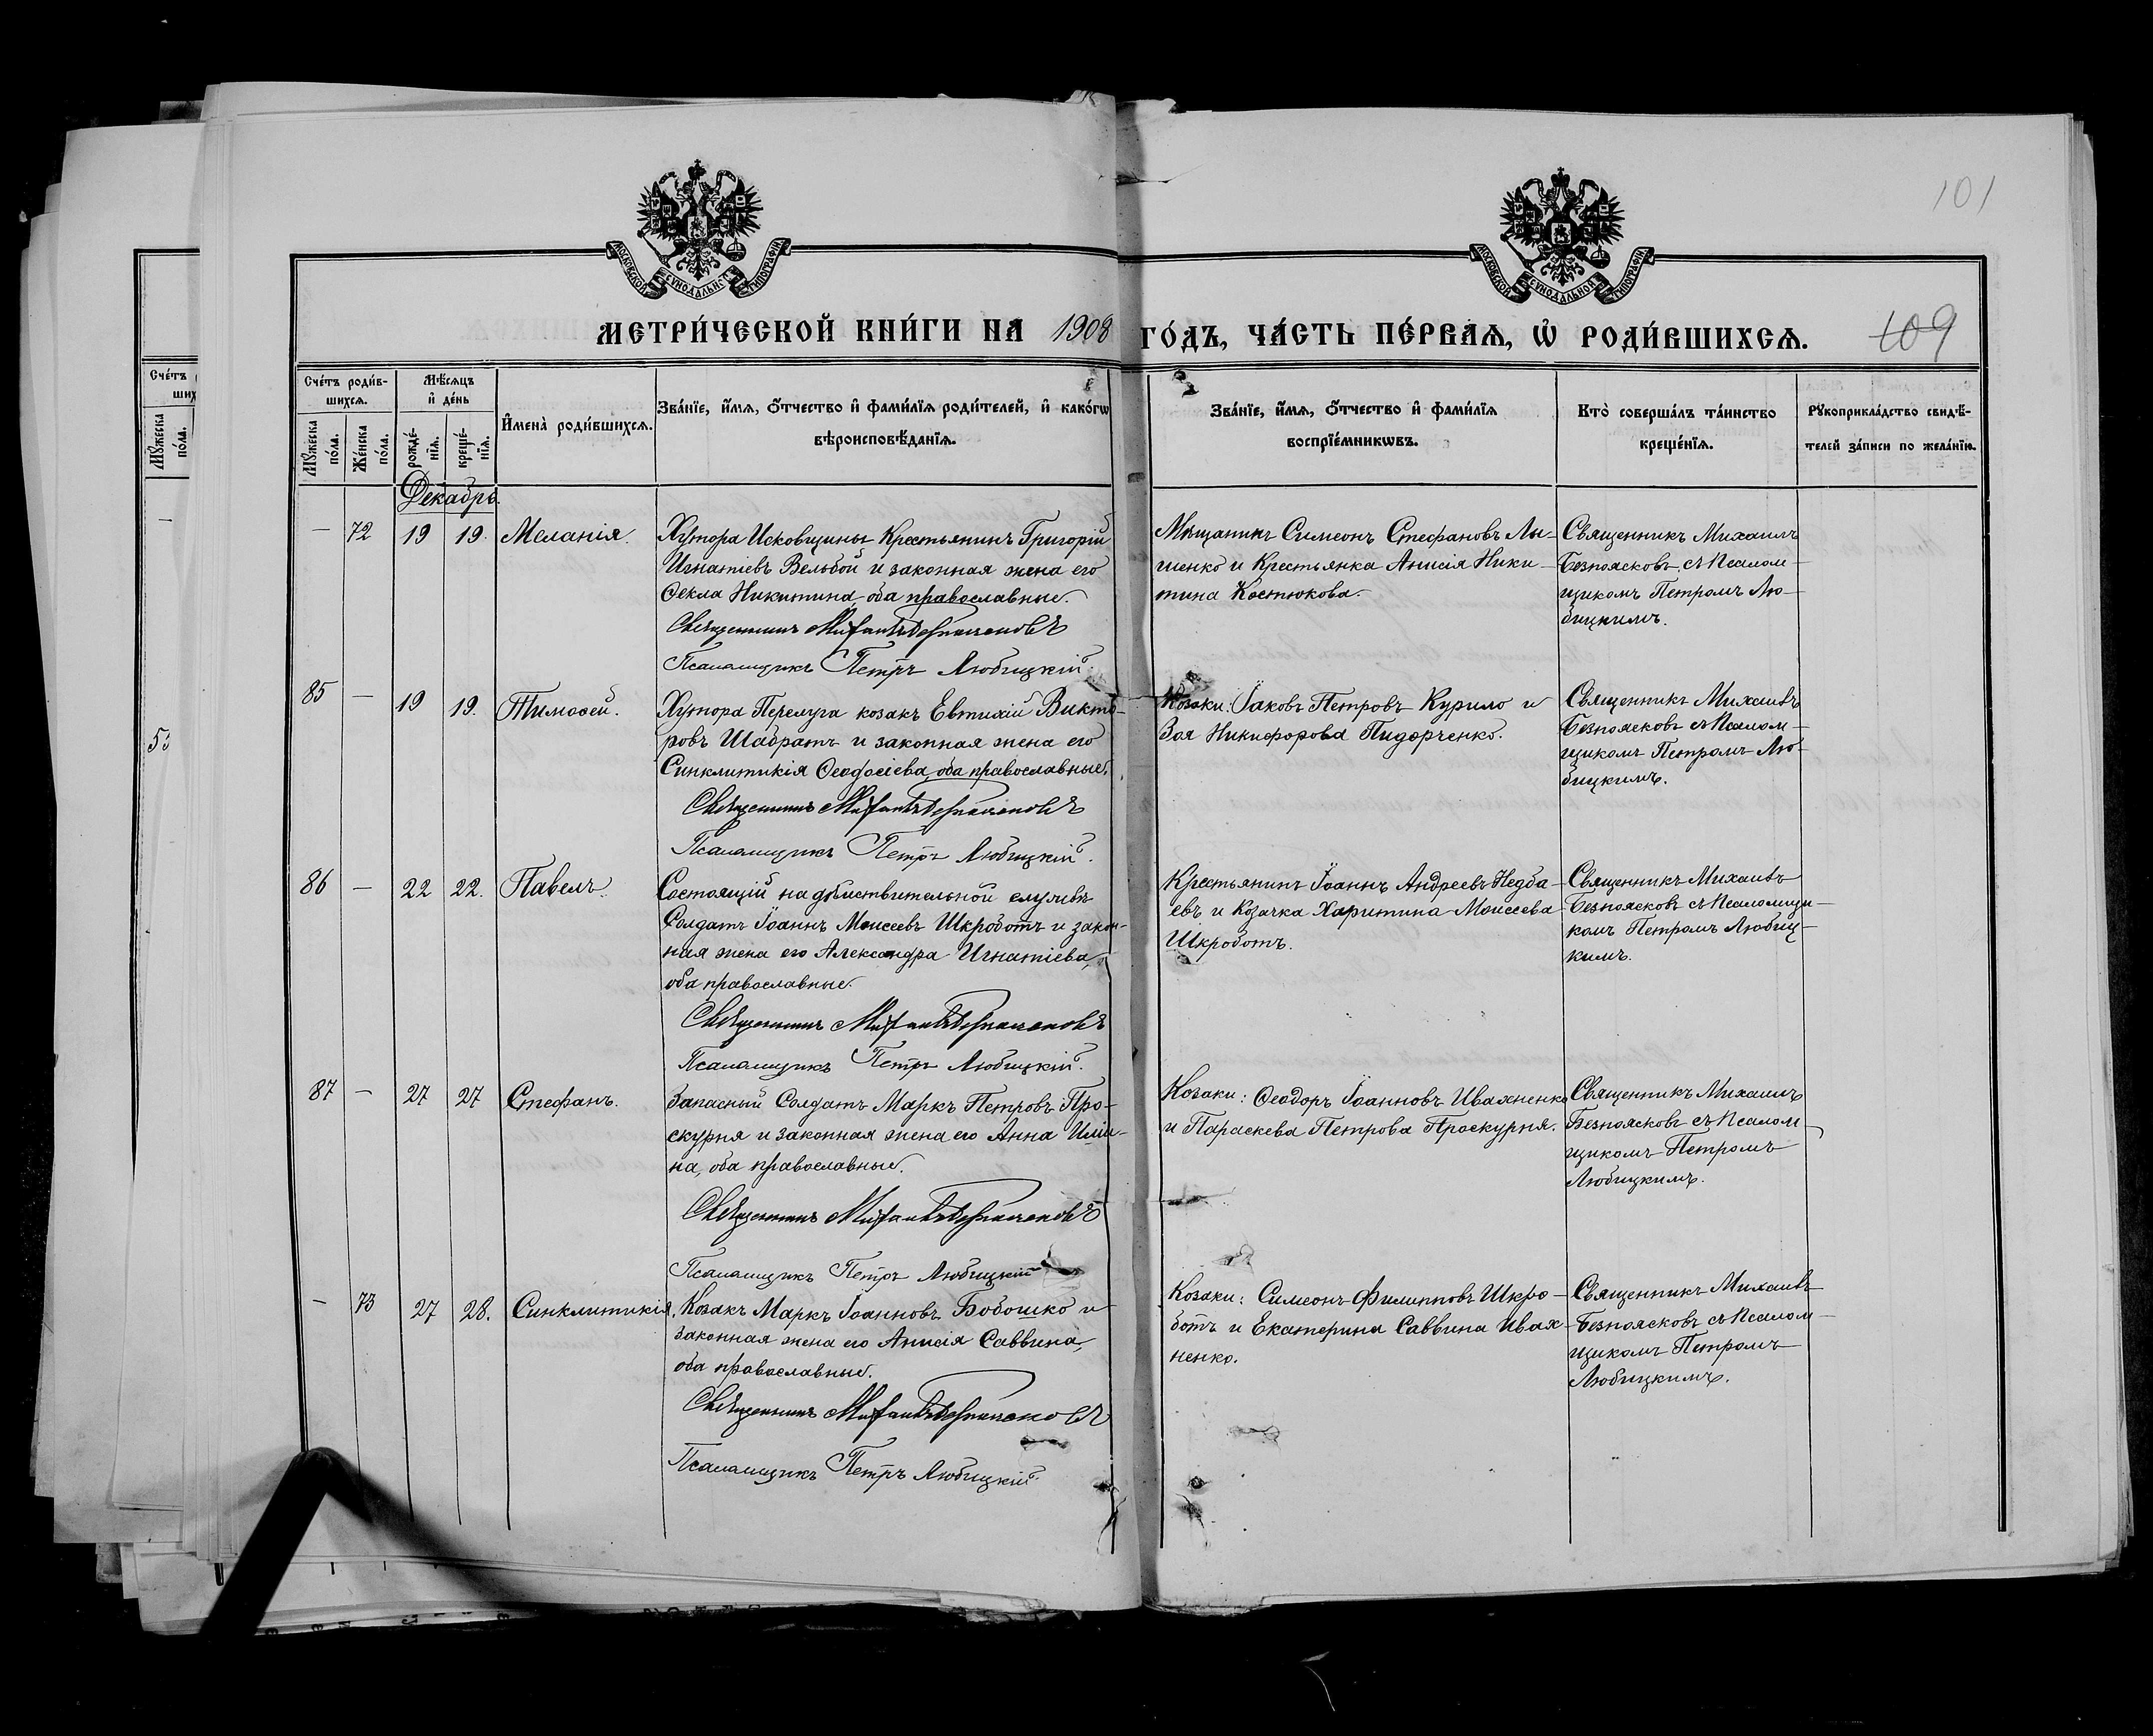 101
МОСКОВСКОЙ СѴНОДАЛЬНОЙ ТИПОГРАФІИ
МОСКОВСКОЙ СѴНОДАЛЬНОЙ ТИПОГРАФІИ
МЕТРИ́ЧЕСКОЙ КНИ́ГИ НА 1908 ГО́ДЪ, ЧА́СТЬ ПЕ́РВАѦ, Ѽ РОДИ́ВШИХСѦ.
109
Сче́тъ роди́в-
шихсѧ.
Мꙋжеска по́ла.
Же́нска по́ла.
Мѣ́сѧцъ
и҆ де́нь
рожде́-
нїѧ.
креще́-
нїѧ.
И҆мена̀ роди́вшихсѧ.
Зва́нїе, и҆́мѧ, ѻ҆́тчество и҆ фами́лїѧ роди́телей, и҆ како́гѡ
вѣроисповѣ́данїѧ.
Зва́нїе, и҆́мѧ, ѻ҆́тчество и҆ фами́лїѧ
воспрїе́мникѡвъ.
Кто̀ соверша́лъ та́инство
креще́нїѧ.
Рꙋкоприкла́дство свидѣ́-
телей за́писи по жела́нїю.
Декабрь.
— 72 19 19. Меланія.
Хутора Исковщины Крестьянинъ Григорій
Игнатіевъ Вельбой и законная жена его
Ѳекла Никитина оба православные.
Священникъ Михаилъ Безпоясковъ
Псаломщикъ Петръ Любицкій.
Мѣщанинъ Симеонъ Стефановъ Лы-
шенко и Крестьянка Анисія Ники-
тина Костюкова.
Священникъ Михаилъ
Безпоясковъ съ Псалом-
щикомъ Петромъ Лю-
бицкимъ.
85 — 19 19. Тимоѳей.
Хутора Перелуга козакъ Евтихій Викто-
ровъ Шабратъ и законная жена его
Синклитикія Ѳеодосіева, оба православные.
Священникъ Михаилъ Безпоясковъ
Псаломщикъ Петръ Любицкій.
Козаки: Іаковъ Петровъ Курило и
Зоя Никифорова Пидорченко.
Священникъ Михаилъ
Безпоясковъ съ Псалом-
щикомъ Петромъ Лю-
бицкимъ.
86 — 22 22. Павелъ.
Состоящій на дѣйствительной службѣ
Солдатъ Іоаннъ Моисеевъ Шкроботъ и закон-
ная жена его Александра Игнатіева,
оба православные.
Священникъ Михаилъ Безпоясковъ
Псаломщикъ Петръ Любицкій.
Крестьянинъ Іоаннъ Андреевъ Недба-
евъ и Козачка Харитина Моисеева
Шкроботъ.
Священникъ Михаилъ
Безпоясковъ съ Псаломщи-
комъ Петромъ Любиц-
кимъ.
87 — 27 27 Стефанъ.
Запасный Солдатъ Маркъ Петровъ Про-
скурня и законная жена его Анна Иліи-
на, оба православные.
Священникъ Михаилъ Безпоясковъ
Псаломщикъ Петръ Любицкій
Козаки: Ѳеодоръ Іоанновъ Ивахненко
и Параскева Петрова Проскурня.
Священникъ Михаилъ
Безпоясковъ съ Псалом-
щикомъ Петромъ
Любицкимъ.
— 73 27 28. Синклитикія.
Козакъ Маркъ Іоанновъ Бобошко и
законная жена его Анисія Саввина,
оба православные.
Священникъ Михаилъ Безпоясковъ
Псаломщикъ Петръ Любицкій
Козаки: Симеонъ Филипповъ Шкро-
ботъ и Екатерина Саввина Ивах-
ненко.
Священникъ Михаилъ
Безпоясковъ съ Псалом-
щикомъ Петромъ
Любицкимъ.